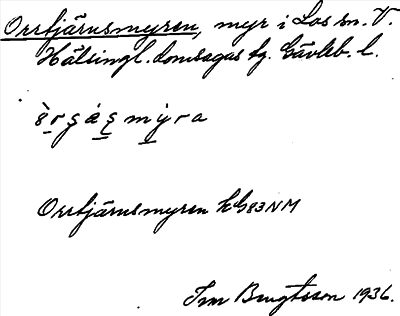 Orrtjärnsmyren, myr i Los sn. V.
Hälsingl. domsagas tg. Gävleb. l.
Orrtjärnsmyren k G83NM
Bengtsson 1936.